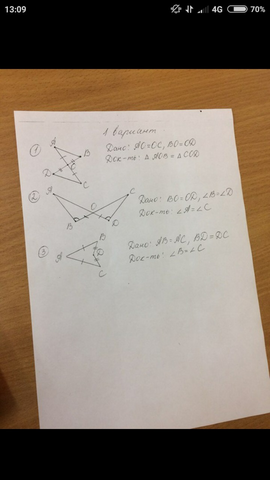 13:09
4G 70%
1 вариант
① A B O D C Дано: AO=OC, BO=OD
Док-ть: △AOB=△COD
② A C O B D Дано: BO=OD, ∠B=∠D
Док-ть: ∠A=∠C
③ A B D C Дано: AB=AC, BD=DC
Док-ть: ∠B=∠C